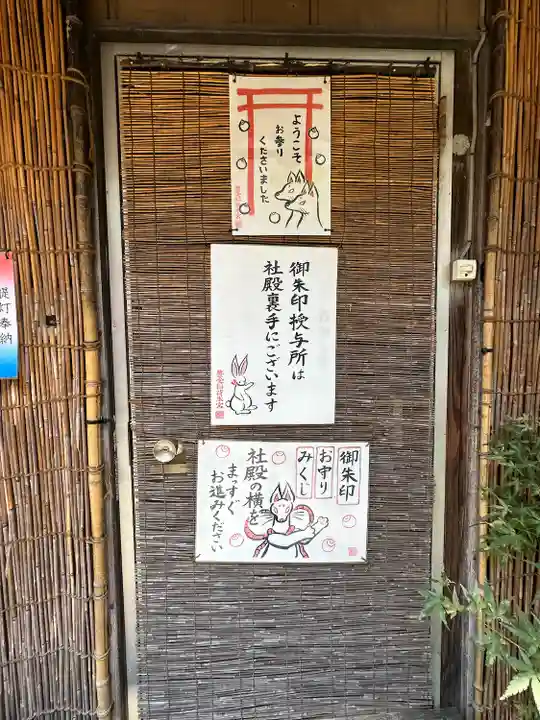 ようこそ
お参り
くださいました
御朱印授与所は
社殿裏手にございます
御朱印
お守り
みくじ
社殿の横を
まっすぐ
お進みください
提灯奉納